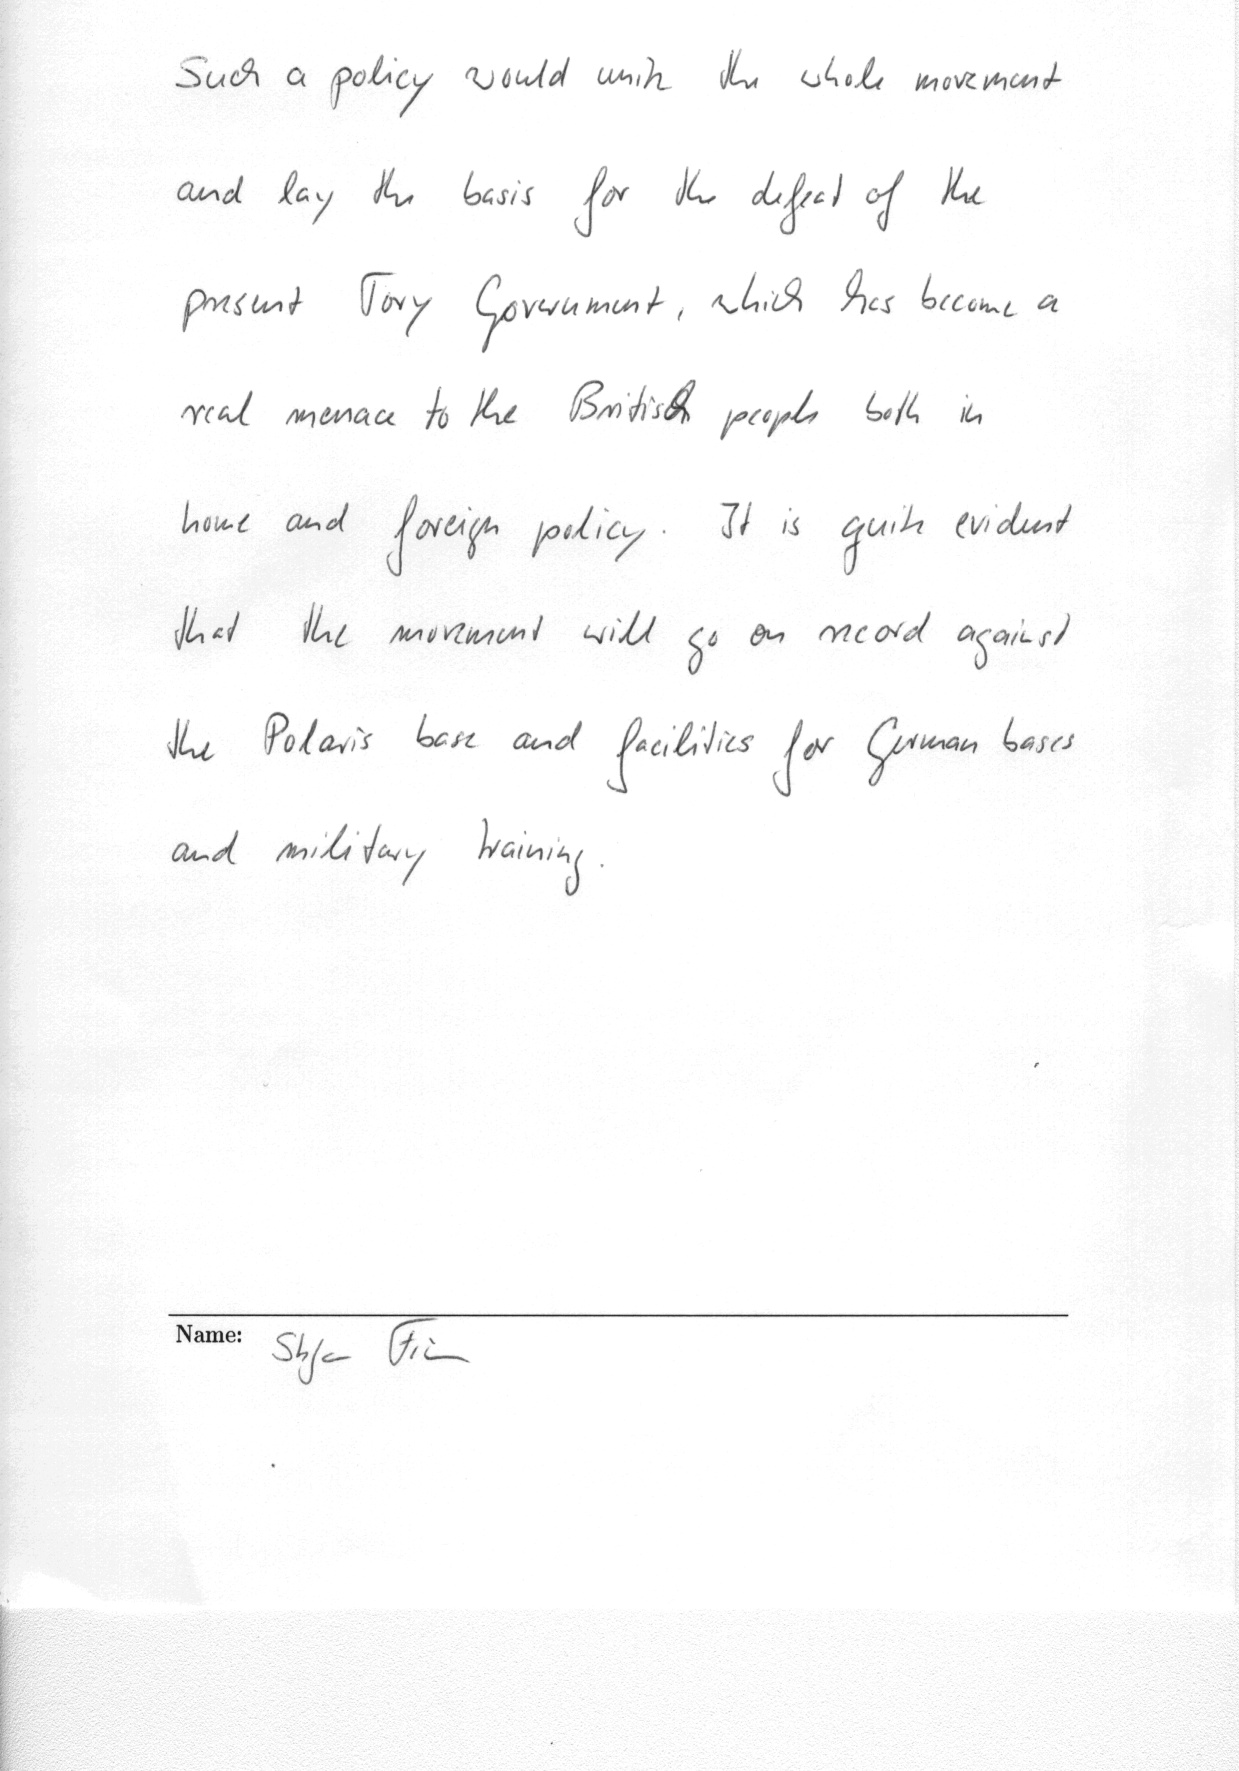 Such a policy would unite the whole movement
and lay the basis for the defeat of the
present Tory Government, which has become a
real menace to the British people both in
home and foreign policy. It is quite evident
that the movement will go on record against
the Polaris base and facilities for German bases
and military training.
Name: